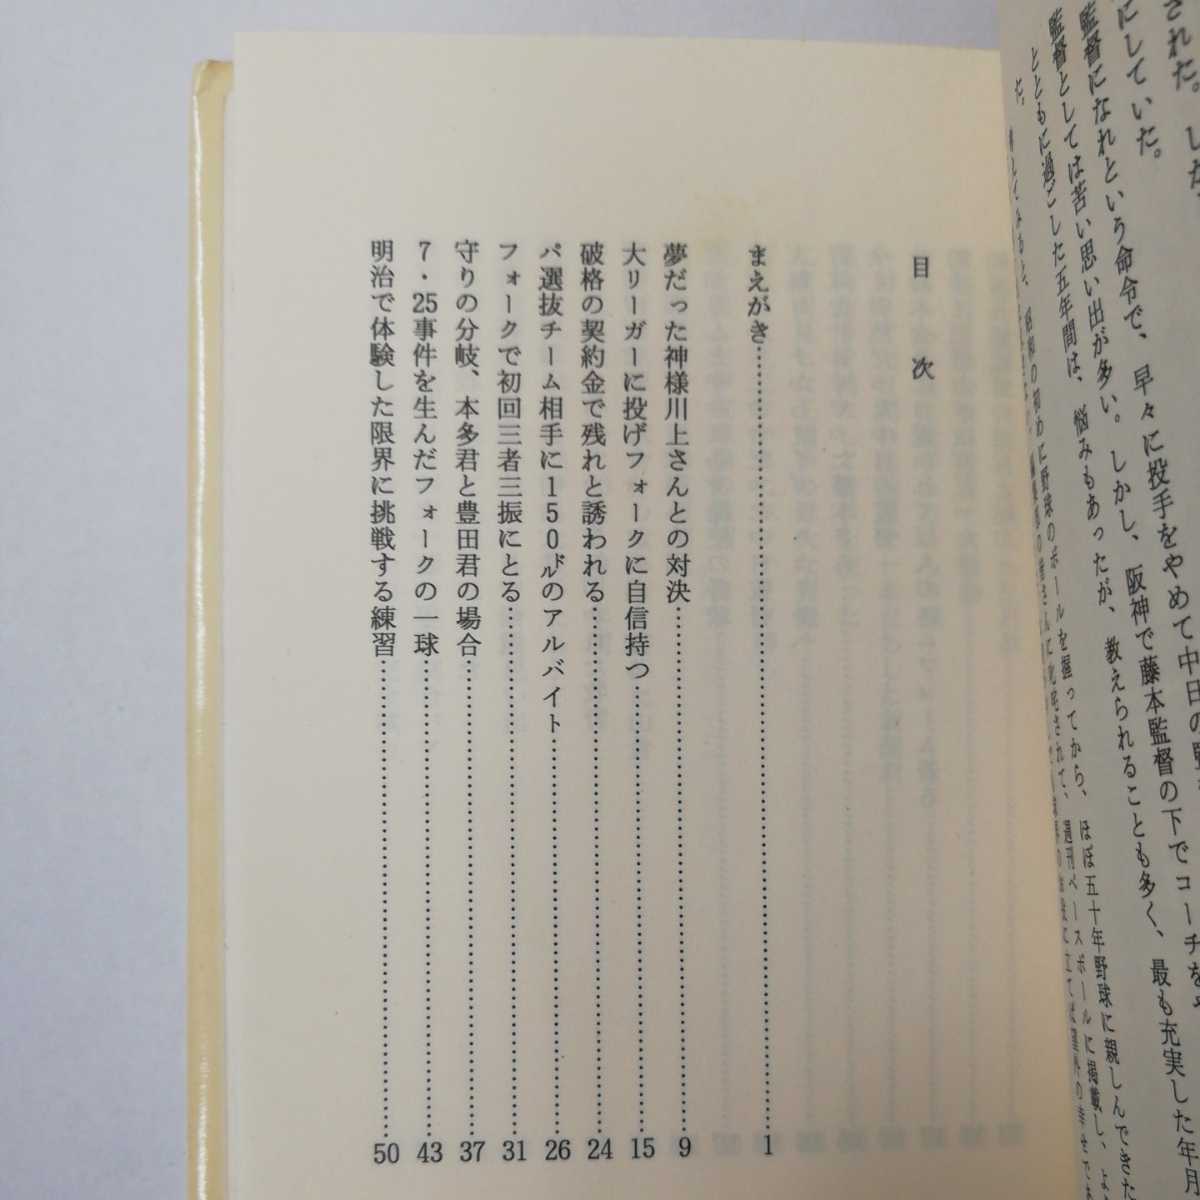 された。しか
にしていた。
監督になれという命令で、早々に投手をやめて中日の監
監督としては苦い思い出が多い。しかし、阪神で藤本監督の下でコーチを
とともに過ごした五年間は、悩みもあったが、教えられることも多く、最も充実した年月
た。
昭和の初めに野球のボールを握ってから、ほぼ五十年野球に親しんできた
週刊ベースボールに掲載し、よ
目次
まえがき 1
夢だった神様川上さんとの対決 9
大リーガーに投げフォークに自信持つ 15
破格の契約金で残れと誘われる 24
パ選抜チーム相手に150㌦のアルバイト 26
フォークで初回三者三振にとる 31
守りの分岐、本多君と豊田君の場合 37
7・25事件を生んだフォークの一球 43
明治で体験した限界に挑戦する練習 50